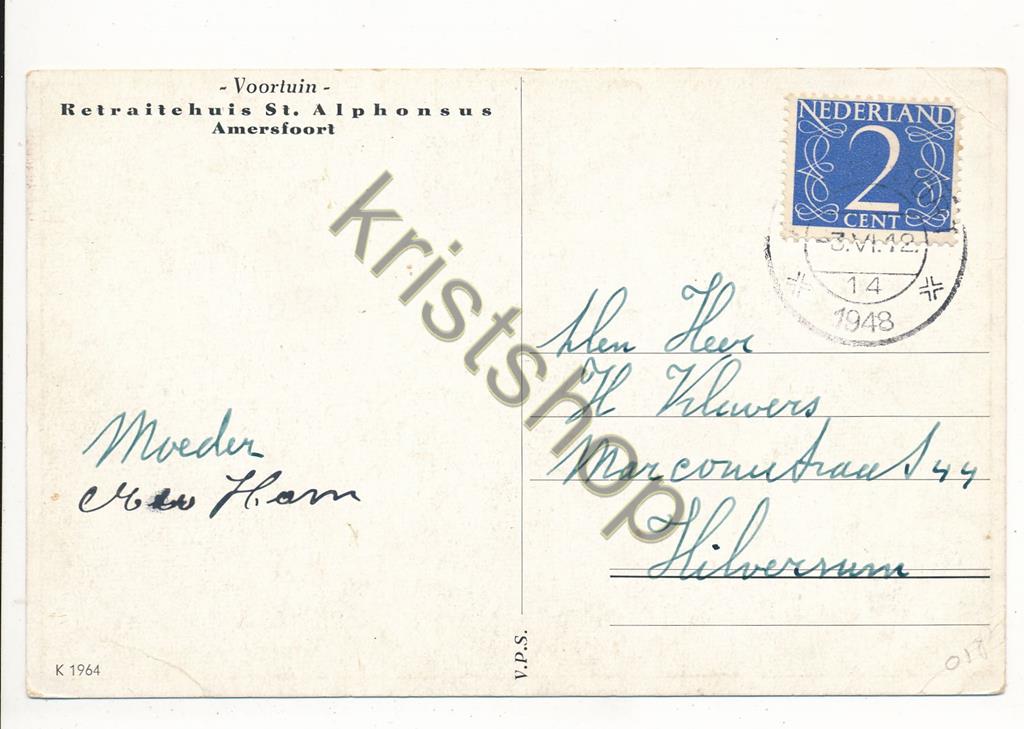 - Voortuin -
Retraitehuis St. Alphonsus
Amersfoort
NEDERLAND
2
CENT
-3.VI.12.
14
1948
Den Heer
H Klavers
Marconistraat 44
Hilversum
Moeder
Ham
V.P.S.
K 1964
kristshop